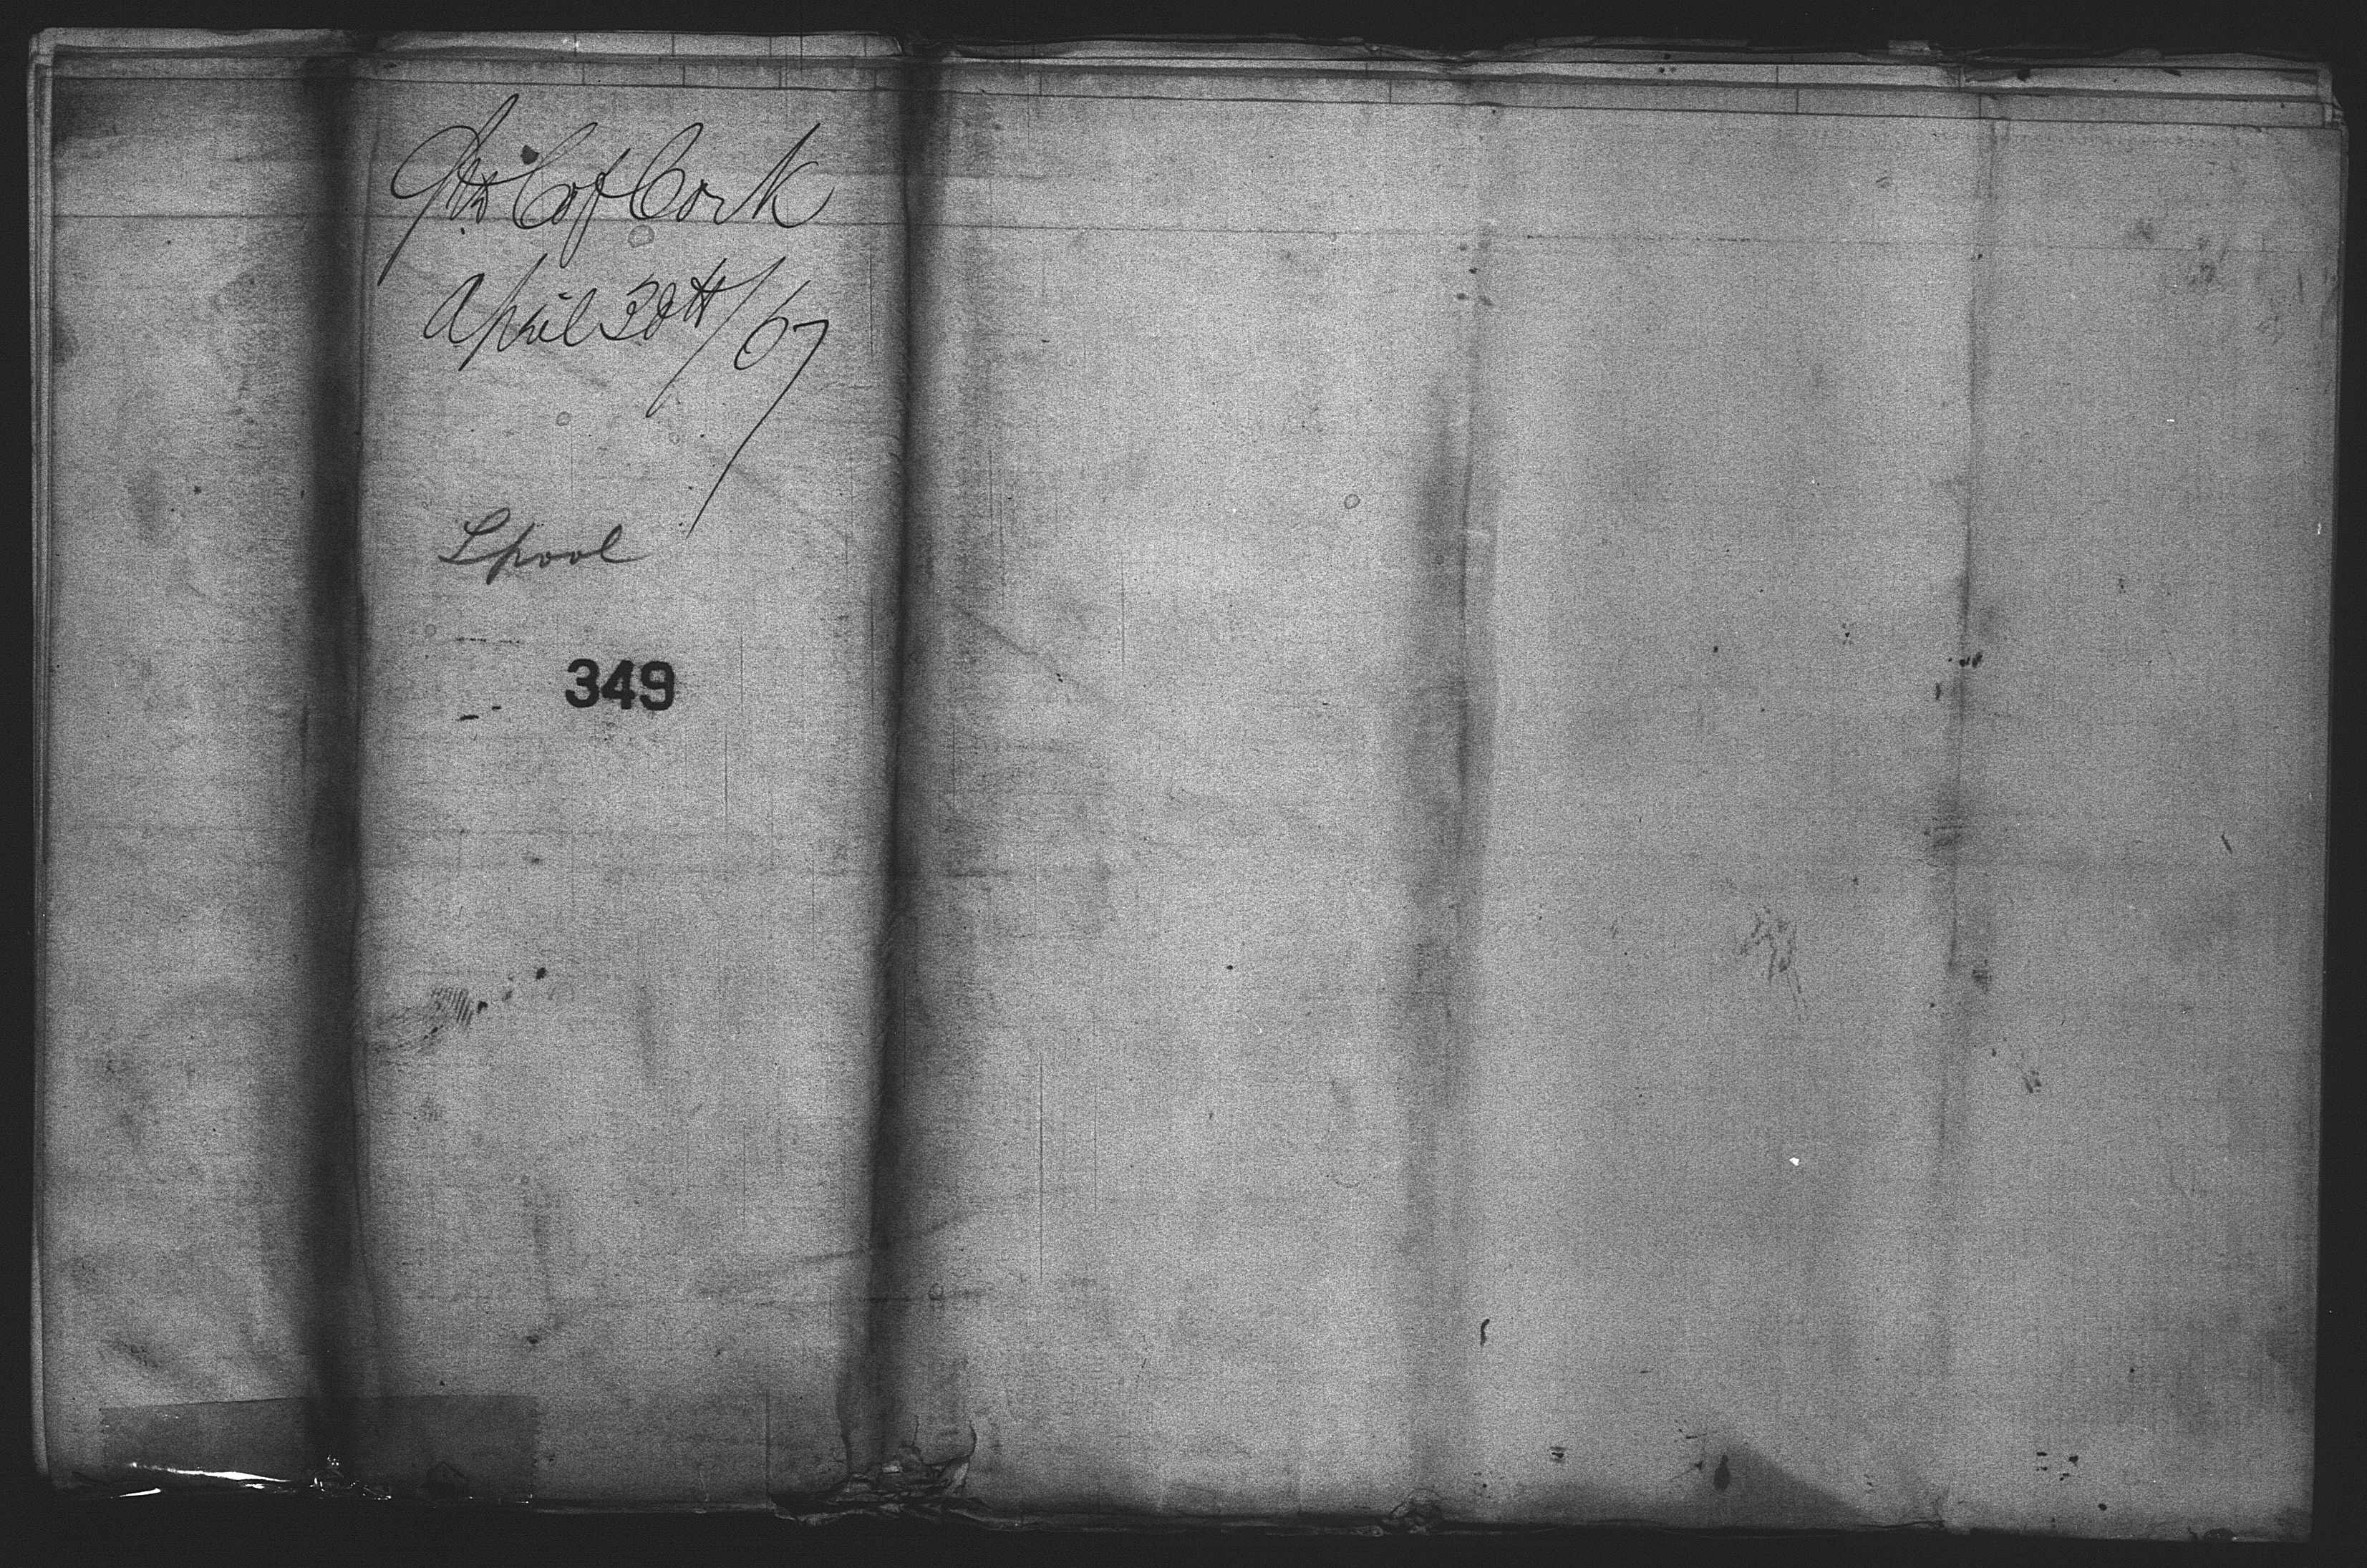 SS C of Cork
April 30th/67
Lpool
349